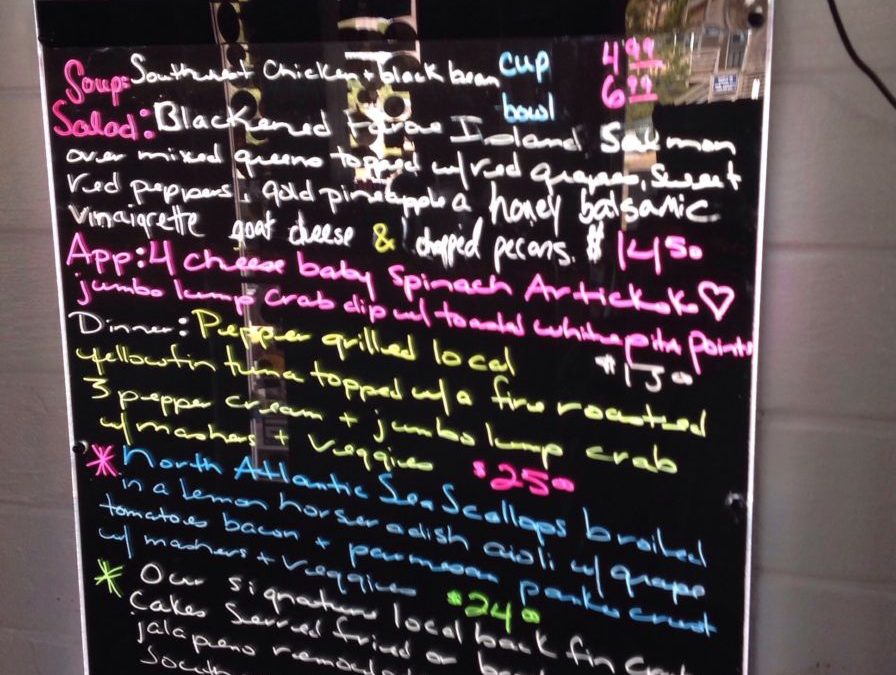 Soup: Southwest Chicken + black bean cup 4.99
bowl 6.99
Salad: Blackened Faroe Island Salmon
over mixed greens topped w/ red grapes, sweet
red peppers, gold pineapple a honey balsamic
vinaigrette goat cheese & chopped pecans. $14.50
App: 4 cheese baby Spinach Artichoke ♡
jumbo lump crab dip w/ toasted white pita points
$13.00
Dinner: Pepper grilled local
yellowfin tuna topped w/ a fire roasted
3 pepper cream + jumbo lump crab
w/ mashers + veggies $25.00
* North Atlantic Sea Scallops broiled
in a lemon horseradish aioli w/ grape
tomatoes bacon + parmesan panko crust
w/ mashers + veggies $24.00
* Our signature local back fin crab
cakes served fried or
jalapeno
South